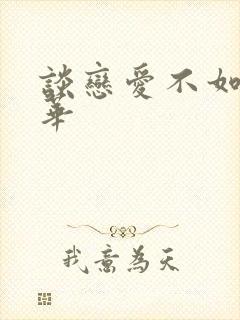 談戀愛不如
華
我意為天